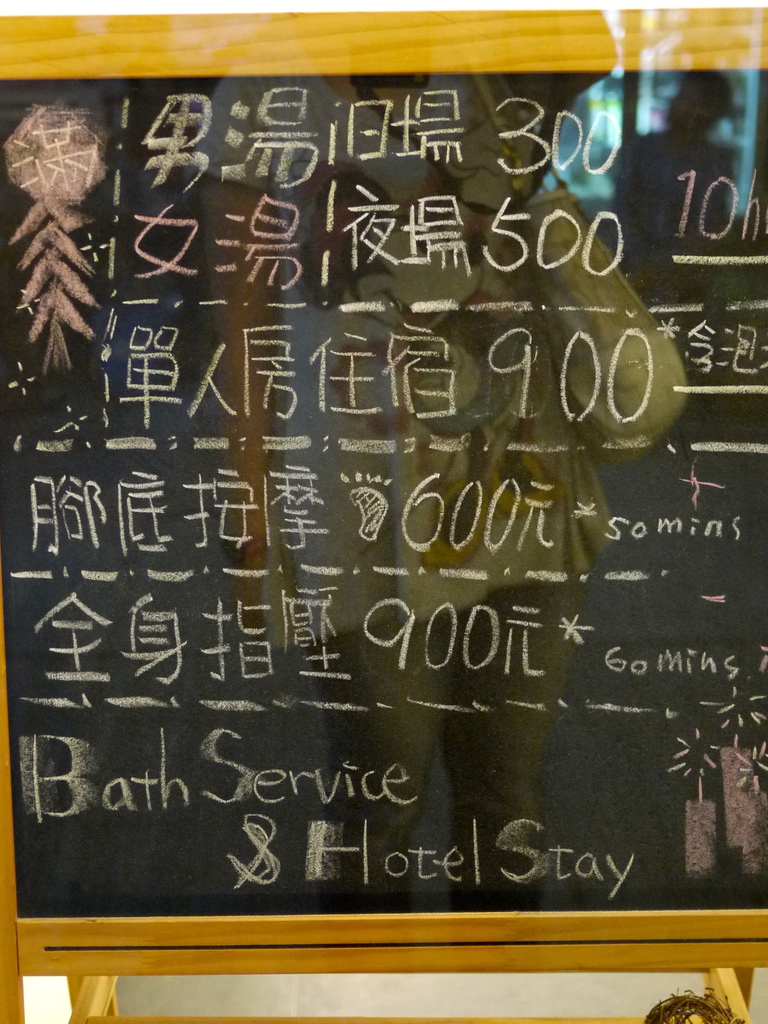 滿 男湯 日場 300
女湯 夜場 500 10h
單人房住宿 900 *含泡
腳底按摩 600元 * 50mins
全身指壓 900元 * 60mins
Bath Service
& Hotel Stay